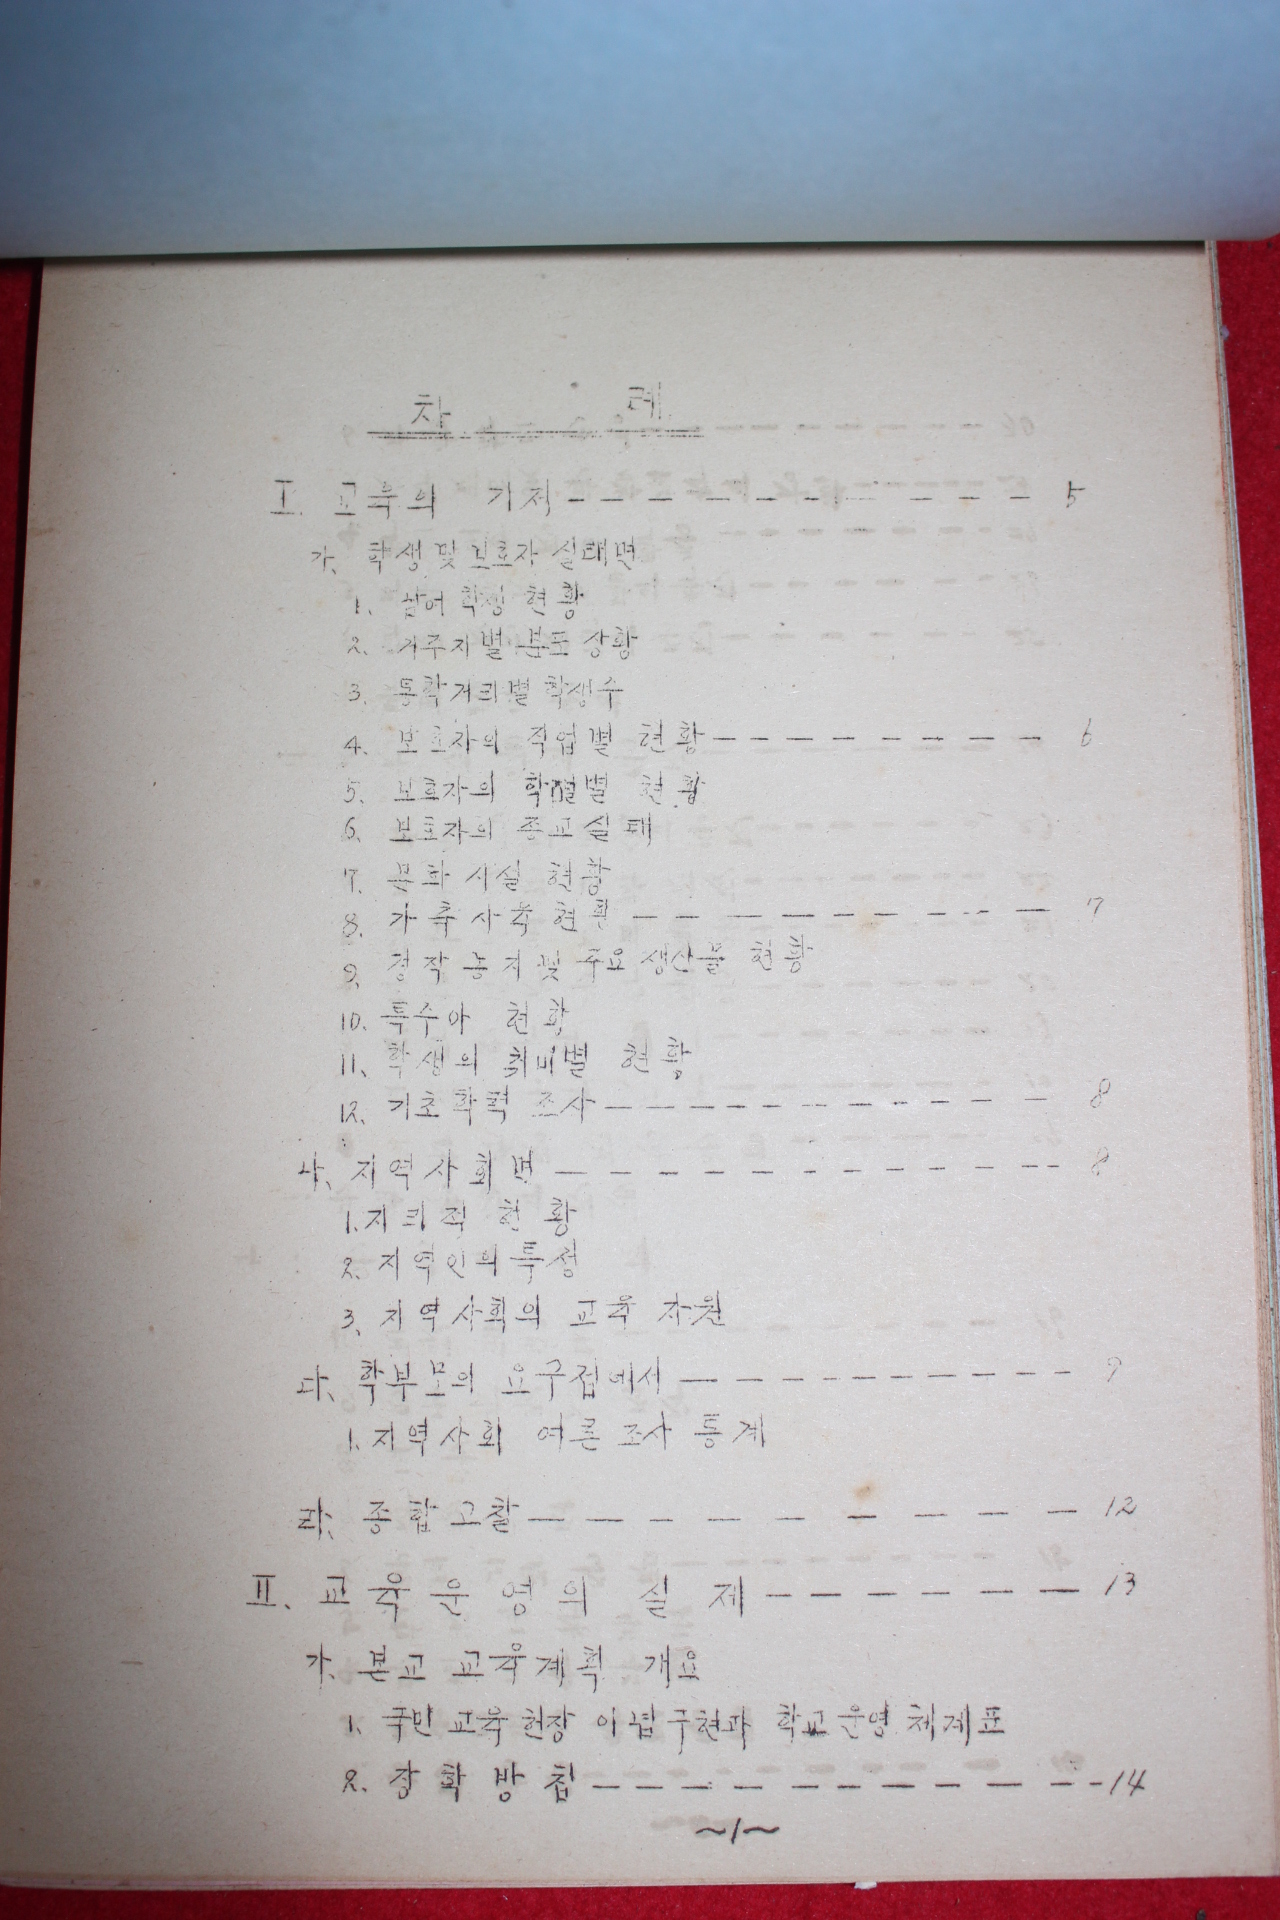 차 례
I. 교육의 기저 - - - - - - - - - - 5
가. 학생 및 보호자 실태면
1. 참여학생 현황
2. 거주지별 분포 상황
3. 통학거리별 학생수
4. 보호자의 직업별 현황 - - - - - - - - 6
5. 보호자의 학력별 현황
6. 보호자의 종교실태
7. 문화 시설 현황
8. 가축사육현황 - - - - - - - - - 7
9. 경작농지및 주요생산물 현황
10. 특수아 현황
11. 학생의 취미별 현황
12. 기초학력 조사 - - - - - - - - - - - 8
나. 지역사회면 - - - - - - - - - - - 8
1. 지리적 현황
2. 지역인의특성
3. 지역사회의 교육 자원
다. 학부모의 요구점에서 - - - - - - - - - - 9
1. 지역사회 여론조사 통계
라. 종합고찰 - - - - - - - - - - 12
II. 교육운영의 실제 - - - - - - - 13
가. 본교 교육계획 개요
1. 국민교육헌장 이념구현과 학교운영체계표
2. 장학방침 - - - - - - - - - - - 14
~1~